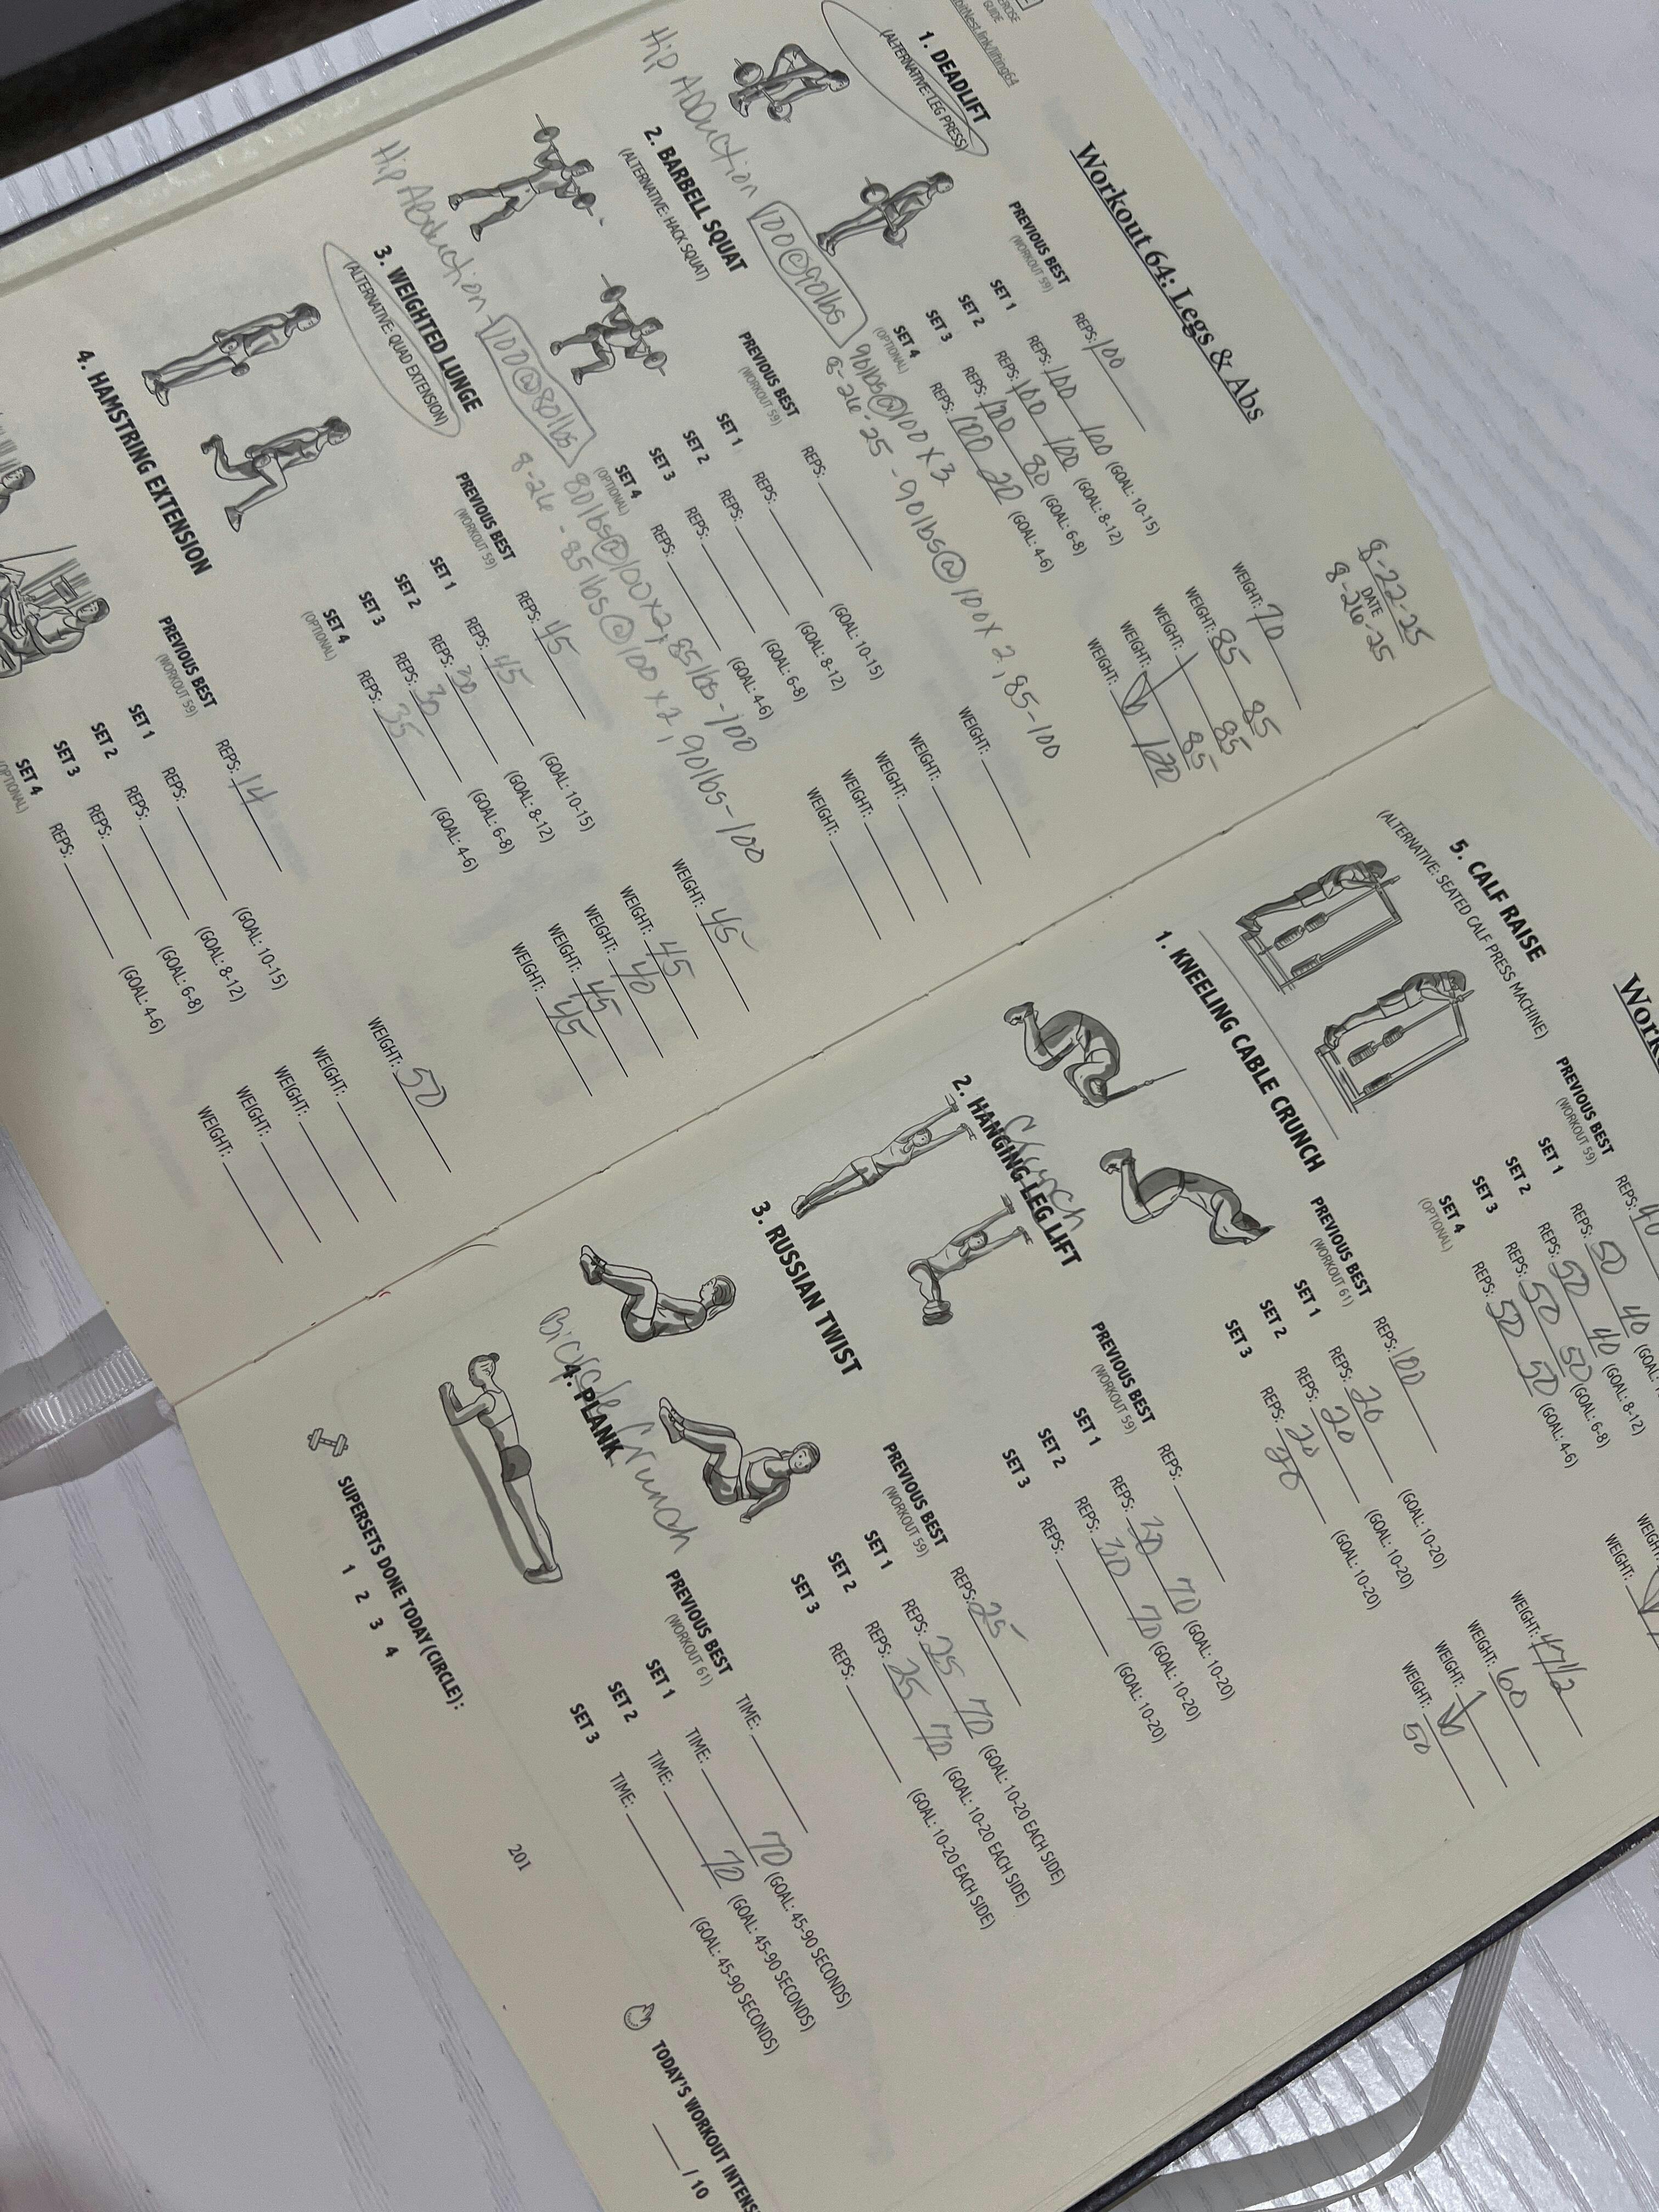 EXERCISE
GUIDE
bitNest.link/lifting64
Workout 64: Legs & Abs
8-22-25
DATE
8-26-25
1. DEADLIFT
(ALTERNATIVE: LEG PRESS)
PREVIOUS BEST
(WORKOUT 59)
REPS: 100
WEIGHT: 70
SET 1
REPS: 100 100 (GOAL: 10-15)
WEIGHT: 85 85
SET 2
REPS: 100 100 (GOAL: 8-12)
WEIGHT: 85
SET 3
REPS: 100 80 (GOAL: 6-8)
WEIGHT: 85
SET 4
(OPTIONAL)
REPS: 100 20 (GOAL: 4-6)
WEIGHT: 100
Hip ADDuction
100@90lbs
90lbs@100x3
8-26-25 - 90lbs@100x2, 85-100
2. BARBELL SQUAT
(ALTERNATIVE: HACK SQUAT)
PREVIOUS BEST
(WORKOUT 59)
REPS:
WEIGHT:
SET 1
REPS: (GOAL: 10-15)
WEIGHT:
SET 2
REPS: (GOAL: 8-12)
WEIGHT:
SET 3
REPS: (GOAL: 6-8)
WEIGHT:
SET 4
(OPTIONAL)
REPS: (GOAL: 4-6)
WEIGHT:
Hip Abduction -
100@80lbs
80lbs@100x2, 85lbs-100
8-26 - 85lbs@100x2, 90lbs-100
3. WEIGHTED LUNGE
(ALTERNATIVE: QUAD EXTENSION)
PREVIOUS BEST
(WORKOUT 59)
REPS: 45
WEIGHT: 45
SET 1
REPS: 45 (GOAL: 10-15)
WEIGHT: 45
SET 2
REPS: (GOAL: 8-12)
WEIGHT: 40
SET 3
REPS: 30 (GOAL: 6-8)
WEIGHT: 45
SET 4
(OPTIONAL)
REPS: 35 (GOAL: 4-6)
WEIGHT: 45
4. HAMSTRING EXTENSION
PREVIOUS BEST
(WORKOUT 59)
REPS: 14
WEIGHT: 50
SET 1
REPS: (GOAL: 10-15)
WEIGHT:
SET 2
REPS: (GOAL: 8-12)
WEIGHT:
SET 3
REPS: (GOAL: 6-8)
WEIGHT:
SET 4
(OPTIONAL)
REPS: (GOAL: 4-6)
WEIGHT:
Work
5. CALF RAISE
(ALTERNATIVE: SEATED CALF PRESS MACHINE)
PREVIOUS BEST
(WORKOUT 59)
REPS: 40
SET 1
REPS: 50 40 (GOAL:
SET 2
REPS: 50 40 (GOAL: 8-12)
SET 3
REPS: 50 50 (GOAL: 6-8)
WEIGHT:
SET 4
(OPTIONAL)
REPS: 50 50 (GOAL: 4-6)
WEIGHT:
1. KNEELING CABLE CRUNCH
PREVIOUS BEST
(WORKOUT 61)
REPS: 100
WEIGHT: 47 1/2
SET 1
REPS: 20 (GOAL: 10-20)
WEIGHT: 60
SET 2
REPS: 20 (GOAL: 10-20)
WEIGHT:
SET 3
REPS: 20 (GOAL: 10-20)
WEIGHT:
50
2. HANGING LEG LIFT
Crunch
PREVIOUS BEST
(WORKOUT 59)
REPS:
SET 1
REPS: 30 70 (GOAL: 10-20)
SET 2
REPS: 30 70 (GOAL: 10-20)
SET 3
REPS: (GOAL: 10-20)
3. RUSSIAN TWIST
PREVIOUS BEST
(WORKOUT 59)
REPS: 25
SET 1
REPS: 25 70 (GOAL: 10-20 EACH SIDE)
SET 2
REPS: 25 70 (GOAL: 10-20 EACH SIDE)
SET 3
REPS: (GOAL: 10-20 EACH SIDE)
4. PLANK
Bicycle Crunch
PREVIOUS BEST
(WORKOUT 61)
TIME:
SET 1
TIME: 70 (GOAL: 45-90 SECONDS)
SET 2
TIME: 70 (GOAL: 45-90 SECONDS)
SET 3
TIME: (GOAL: 45-90 SECONDS)
SUPERSETS DONE TODAY (CIRCLE):
1 2 3 4
TODAY'S WORKOUT INTENS
/ 10
201